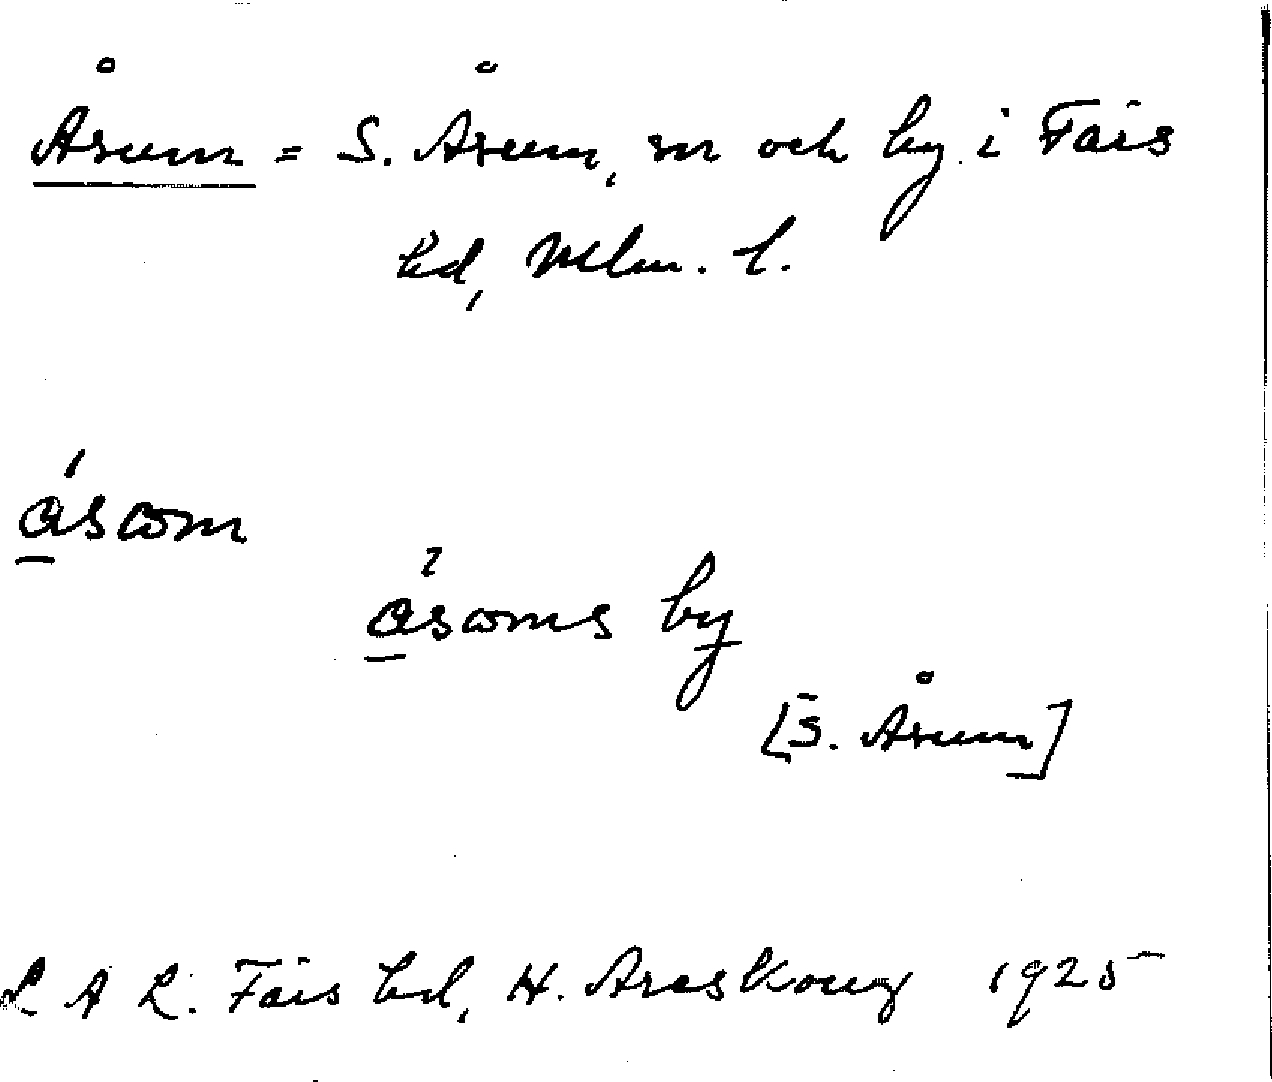 Åsum = S. Åsum, sn och by i Färs
hd, Mlm. l.
åsωm
åsωms by
[S. Åsum]
L A L. Färs hd, H. Areskoug 1925